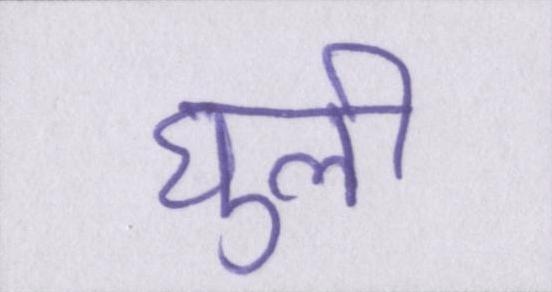 घुली